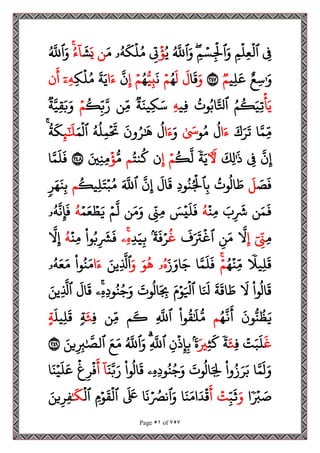 فِي ٱلْعِلْمِ وَٱلْجِسْمِۖ وَٱللَّهُ يُؤْتِي مُلْكَهُۥ مَن يَشَآءُۚ وَٱللَّهُ
وَٰسِعٌ عَلِيمٞ ٢٤٧ وَقَالَ لَهُمْ نَبِيُّهُمْ إِنَّ ءَايَةَ مُلْكِهِۦٓ أَن
يَأْتِيَكُمُ ٱلتَّابُوتُ فِيهِ سَكِينَةٞ مِّن رَّبِّكُمْ وَبَقِيَّةٞ
مِّمَّا تَرَكَ ءَالُ مُوسَىٰ وَءَالُ هَٰرُونَ تَحْمِلُهُ ٱلْمَلَٰٓئِكَةُۚ
إِنَّ فِي ذَٰلِكَ لَأٓيَةٗ لَّكُمْ إِن كُنتُم مُّؤْمِنِينَ ٢٤٨ فَلَمَّا
فَصَلَ طَالُوتُ بِٱلْجُنُودِ قَالَ إِنَّ ٱللَّهَ مُبْتَلِيكُم بِنَهَرٖ
فَمَن شَرِبَ مِنْهُ فَلَيْسَ مِنِّي وَمَن لَّمْ يَطْعَمْهُ فَإِنَّهُۥ
مِنِّيٓ إِلَّا مَنِ ٱغْتَرَفَ غُرْفَةَۢ بِيَدِهِۦۚ فَشَرِبُوا۟ مِنْهُ إِلَّا
قَلِيلٗا مِّنْهُمْۚ فَلَمَّا جَاوَزَهُۥ هُوَ وَٱلَّذِينَ ءَامَنُوا۟ مَعَهُۥ
قَالُوا۟ لَا طَاقَةَ لَنَا ٱلْيَوْمَ بِجَالُوتَ وَجُنُودِهِۦۚ قَالَ ٱلَّذِينَ
يَظُنُّونَ أَنَّهُم مُّلَٰقُوا۟ ٱللَّهِ كَم مِّن فِئَةٖ قَلِيلَةٍ
غَلَبَتْ فِئَةٗ كَثِيرَةَۢ بِإِذْنِ ٱللَّهِۗ وَٱللَّهُ مَعَ ٱلصَّٰبِرِينَ ٢٤٩
وَلَمَّا بَرَزُوا۟ لِجَالُوتَ وَجُنُودِهِۦ قَالُوا۟ رَبَّنَآ أَفْرِغْ عَلَيْنَا
صَبْرٗا وَثَبِّتْ أَقْدَامَنَا وَٱنصُرْنَا عَلَى ٱلْقَوْمِ ٱلْكَٰفِرِينَ
Page ٥١ of ٧٥٧